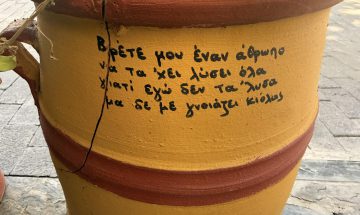 Βρετε μου έναν άθρωπο
να τα 'χει λύσει όλα
γιατί εγώ δεν τα 'λυσα
μα δε με γνοιάζει κιόλας